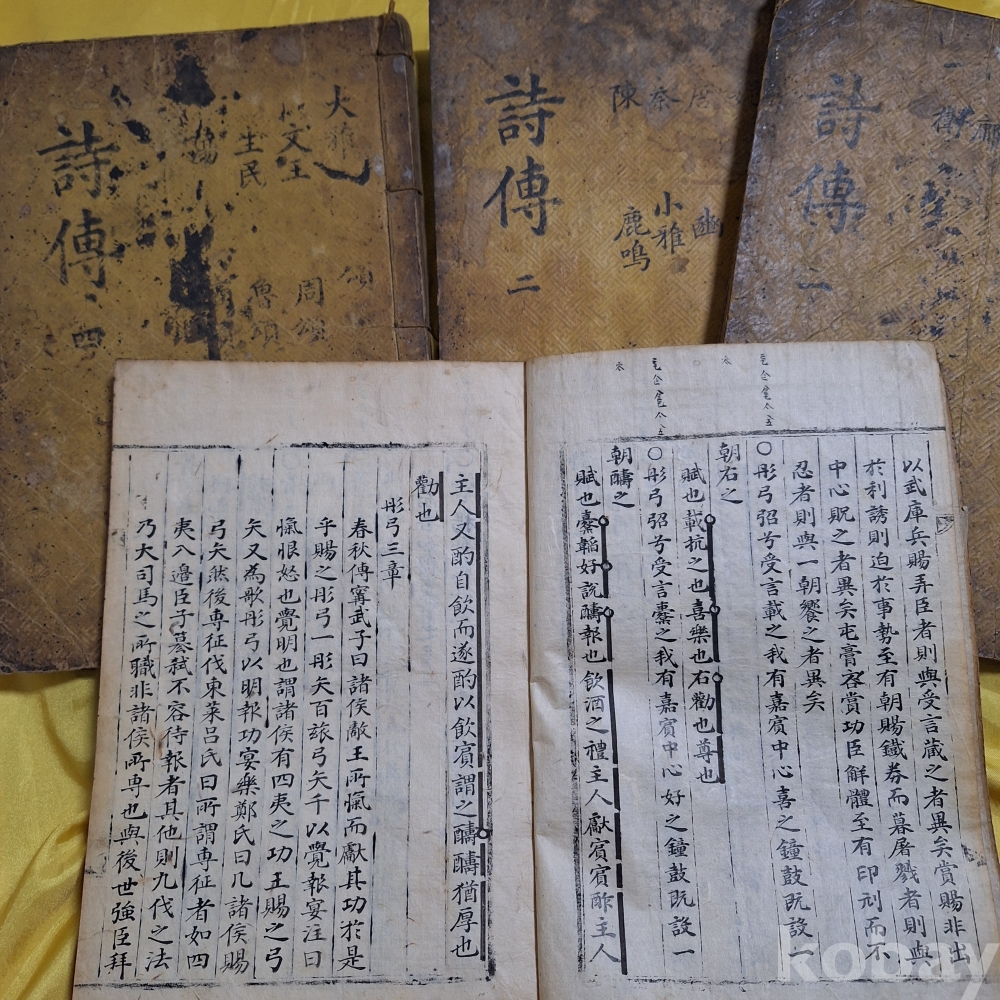 詩傳
四
大雅
文王
生民
蕩
頌
周頌
魯頌
詩傳
二
陳
小雅
鹿鳴
豳
詩傳
一
以武庫兵賜弄臣者則與受言蔵之者異矣賞賜非出
於利誘則迫於事勢至有朝賜鐵券而暮屠戮者則與
中心貺之者異矣屯膏吝賞功臣觧體至有印刓而不
忍者則與一朝饗之者異矣
○彤弓弨兮受言載之我有嘉賓中心喜之鐘鼓旣設一
朝右之
賦也載抗之也喜樂也右勸也尊也
○彤弓弨兮受言櫜之我有嘉賓中心好之鐘鼓旣設一
朝醻之
賦也櫜韜好說醻報也飲酒之禮主人獻賓賓酢主人
主人又酌自飲而遂酌以飲賓謂之醻醻猶厚也
勸也
彤弓三章
春秋傳甯武子曰諸侯敵王所愾而獻其功於是
乎賜之彤弓一彤矢百玈弓矢千以覺報宴注曰
愾恨怒也覺明也謂諸侯有四夷之功王賜之弓
矢又為歌彤弓以明報功宴樂鄭氏曰凡諸侯賜
弓矢然後専征伐東萊呂氏曰所謂専征者如四
夷入邉臣子簒弑不容待報者其他則九伐之法
乃大司馬之所職非諸侯所専也與後世強臣拜
kobay